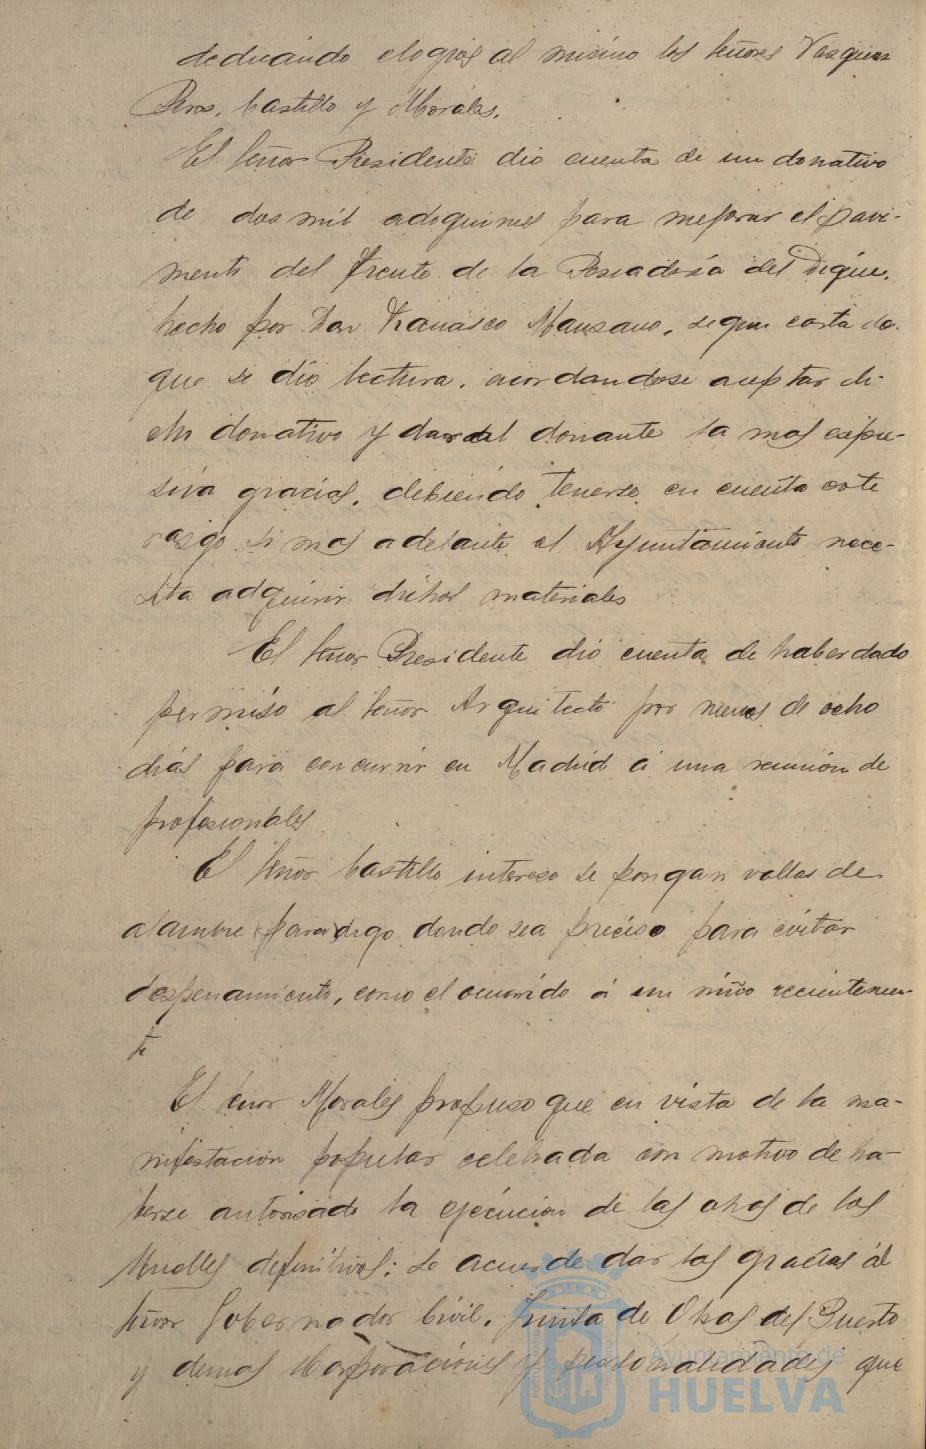 dedicando elogios al mismo los señores Vazquez
Peros, Castillo y Morales.
El señor Presidente dio cuenta de un donativo
de dos mil adoquines para mejorar el pavi-
mento del frente de la Pescaderia del Dique,
hecho por Don Francisco Manzano, segun carta de
que se dio lectura, acordandose aceptar di-
cho donativo y dar al donante la mas expre-
siva gracias, debiendo tenerse en cuenta este
rasgo si mas adelante el Ayuntamiento nece-
sita adquirir dichos materiales
El señor Presidente dio cuenta de haber dado
permiso al señor Arquitecto por menos de ocho
dias para concurrir en Madrid á una reunión de
profesionales
El señor Castillo intereso se pongan vallas de
alambre (para) digo donde sea preciso para evitar
despenamiento, como el ocurrido á un niño recientemen-
te
El señor Morales propuso que en vista de la ma-
nifestacion popular celebrada con motivo de ha-
berse autorisado la ejecucion de las obras de los
Muelles definitivos: se acuerde dar las gracias al
señor Gobernador Civil, Junta de Obras del Puerto
y demas Corporaciones y personalidades que
Ayuntamiento de
HUELVA